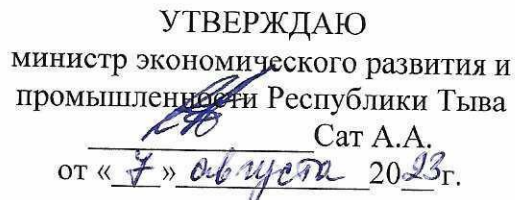 УТВЕРЖДАЮ
министр экономического развития и
промышленности Республики Тыва
________________Сат А.А.
от «7» августа 2023г.